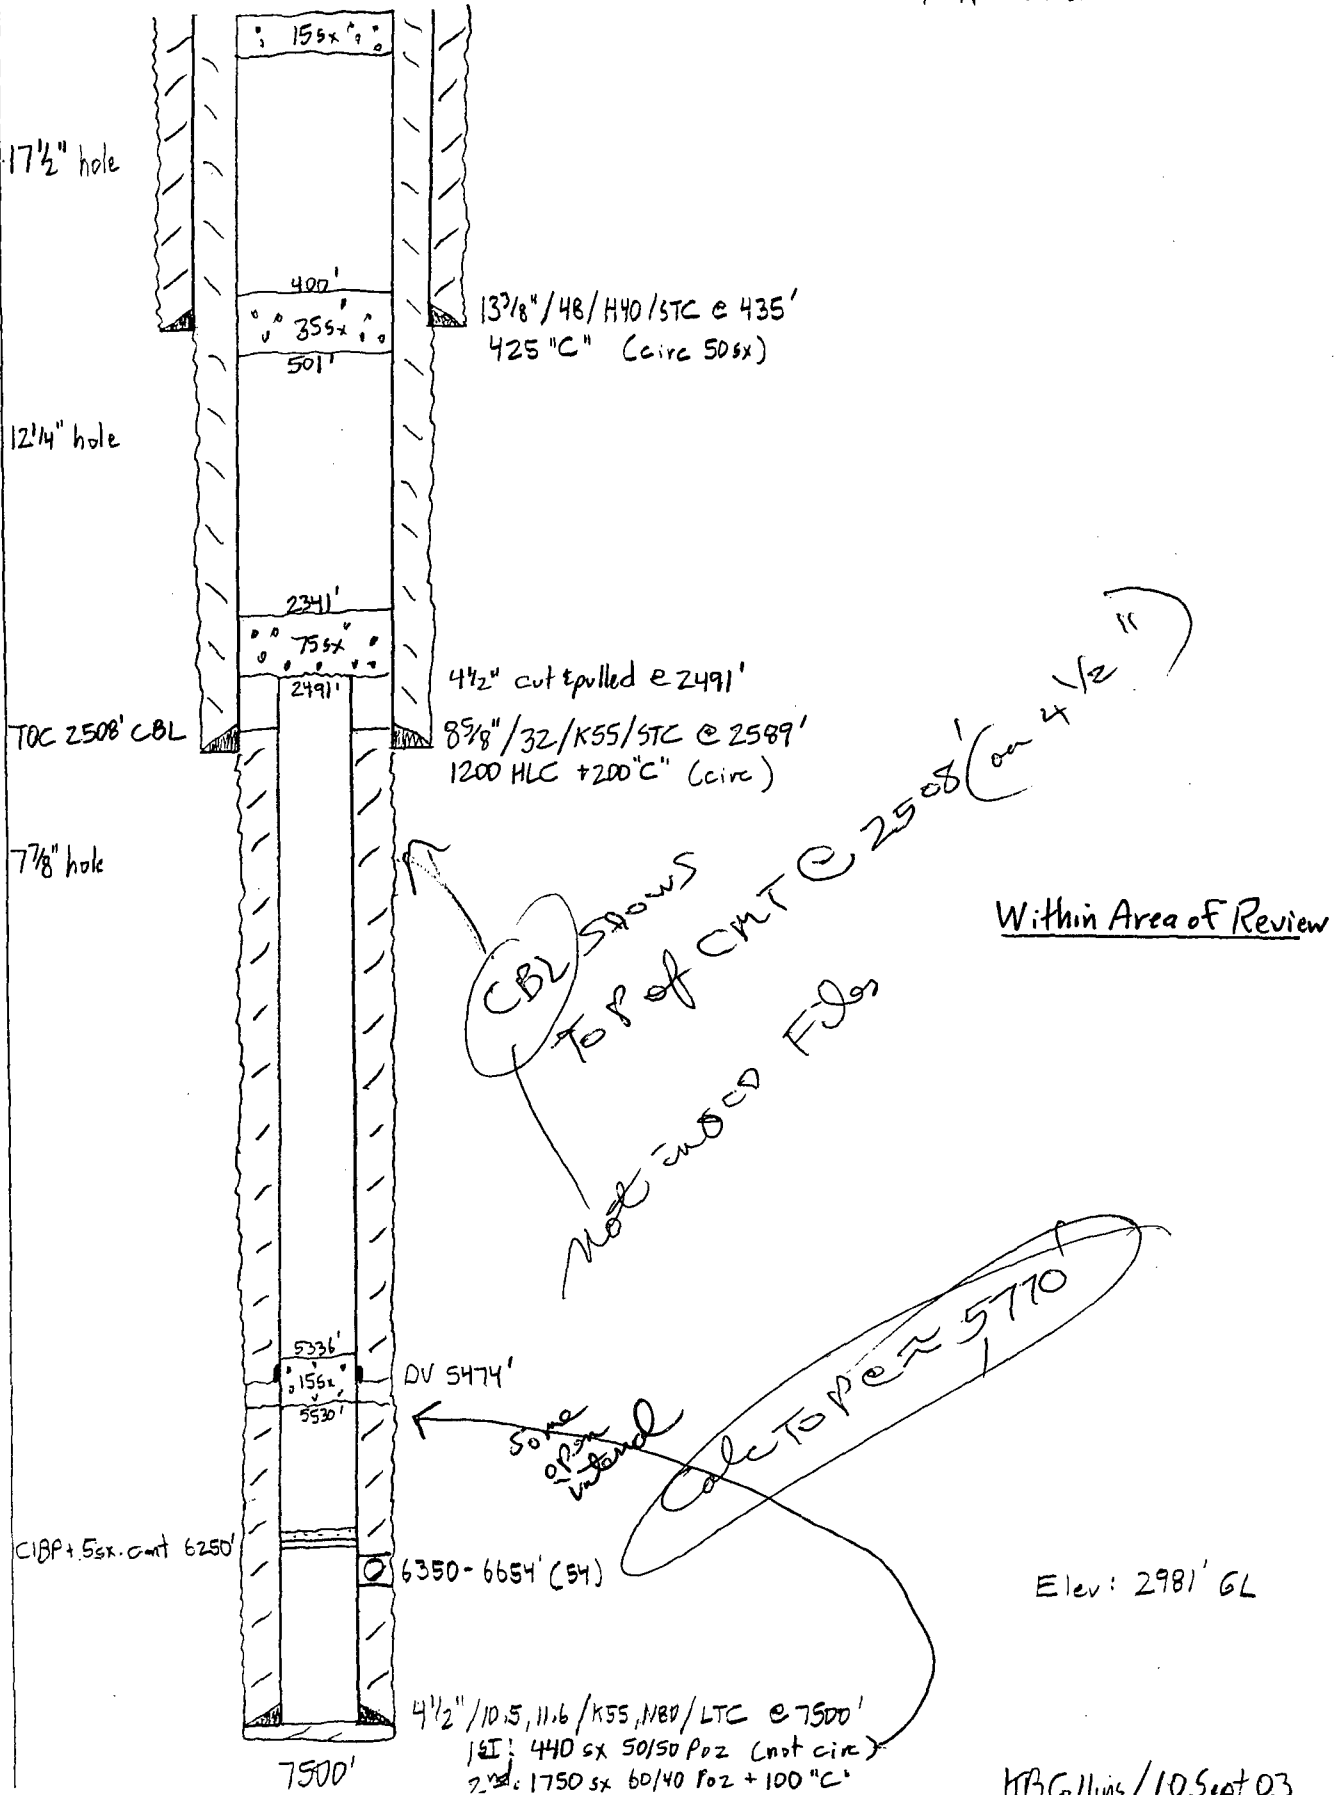 15sx
17½" hole
400'
35sx
501'
13⅜"/48/H40/STC @ 435'
425 "C" (circ 50sx)
12¼" hole
2341'
75sx
2491'
4½" cut & pulled @ 2491'
TOC 2508' CBL
8⅝"/32/K55/STC @ 2589'
1200 HLC + 200 "C" (circ)
7⅞" hole
CBL shows
Top of CMT @ 2508' (on 4 1/2")
Not in OCD Files
Within Area of Review
5336'
15sx
5530'
DV 5474'
some
open
interval
Calc Top @ ≈ 5770'
CIBP + 5sx cmt 6250'
6350-6654' (54)
Elev: 2981' GL
4½"/10.5, 11.6/K55, N80/LTC @ 7500'
1st: 440 sx 50/50 Poz (not circ)
2nd: 1750 sx 60/40 Poz + 100 "C"
7500'
KBCollins/10 Sept 03